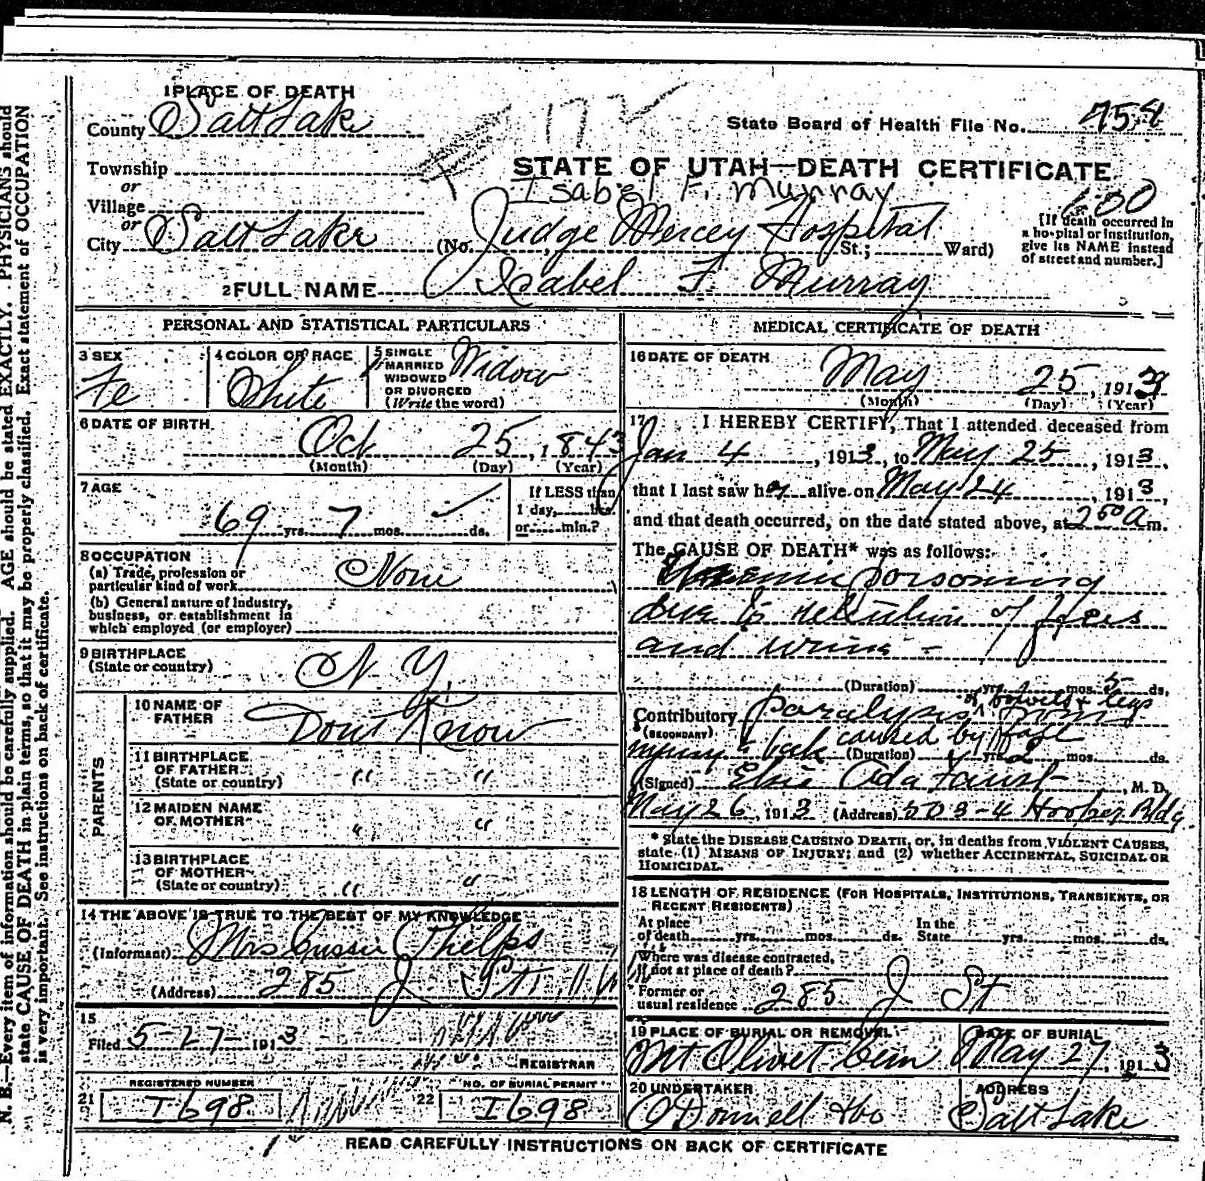 1 PLACE OF DEATH
County Salt Lake
Township
or
Village
or
City Salt Lake
172
State Board of Health File No. 754
STATE OF UTAH—DEATH CERTIFICATE.
Isabel F. Murray
(No. Judge Mercey Hospital St.; Ward)
[If death occurred in
a hospital or institution,
give its NAME instead
of street and number.]
2 FULL NAME Isabel F. Murray
PERSONAL AND STATISTICAL PARTICULARS
3 SEX
Fe
4 COLOR OR RACE
White
5 SINGLE
MARRIED
WIDOWED
OR DIVORCED
(Write the word)
Widow
6 DATE OF BIRTH
Oct 25, 1843
(Month) (Day) (Year)
7 AGE
69 yrs. 7 mos. ds.
If LESS than
1 day, hrs.
or min.?
8 OCCUPATION
(a) Trade, profession or
particular kind of work None
(b) General nature of Industry,
business, or establishment in
which employed (or employer)
9 BIRTHPLACE
(State or country) N. Y.
PARENTS
10 NAME OF
FATHER Dont Know
11 BIRTHPLACE
OF FATHER
(State or country) " "
12 MAIDEN NAME
OF MOTHER " "
13 BIRTHPLACE
OF MOTHER
(State or country) " "
14 THE ABOVE IS TRUE TO THE BEST OF MY KNOWLEDGE
(Informant) Mrs Gussie Phelps
(Address) 285 J St.
15
Filed 5-27- 1913
REGISTRAR
REGISTERED NUMBER
21 I698
NO. OF BURIAL PERMIT
22 I698
MEDICAL CERTIFICATE OF DEATH
16 DATE OF DEATH
May 25, 1913
(Month) (Day) (Year)
17 I HEREBY CERTIFY, That I attended deceased from
Jan 4, 1913, to May 25, 1913,
that I last saw her alive on May 24, 1913,
and that death occurred, on the date stated above, at 2 50 a m.
The CAUSE OF DEATH* was as follows:
Uraemic poisoning
due to retention of feces
and urine -
(Duration) yrs. mos. 5 ds.
Contributory paralysis of bowels & legs
(SECONDARY) caused by
injury to back (Duration) yrs. 2 mos. ds.
(Signed) Elsie Ada Faust, M. D.
May 26, 1913 (Address) 503-4 Hooper Bldg
* State the DISEASE CAUSING DEATH, or, in deaths from VIOLENT CAUSES,
state (1) MEANS OF INJURY; and (2) whether ACCIDENTAL, SUICIDAL OR
HOMICIDAL.
18 LENGTH OF RESIDENCE (FOR HOSPITALS, INSTITUTIONS, TRANSIENTS, OR
RECENT RESIDENTS)
At place
of death yrs. mos. ds.
In the
State yrs. mos. ds.
Where was disease contracted,
if not at place of death?
Former or
usual residence 285 J St
19 PLACE OF BURIAL OR REMOVAL
Mt Olivet Cem
DATE OF BURIAL
May 27, 1913
20 UNDERTAKER
O'Donnell & Co
ADDRESS
Salt Lake
READ CAREFULLY INSTRUCTIONS ON BACK OF CERTIFICATE
N. B.—Every item of information should be carefully supplied. AGE should be stated EXACTLY. PHYSICIANS should
state CAUSE OF DEATH in plain terms, so that it may be properly classified. Exact statement of OCCUPATION
is very important. See instructions on back of certificate.